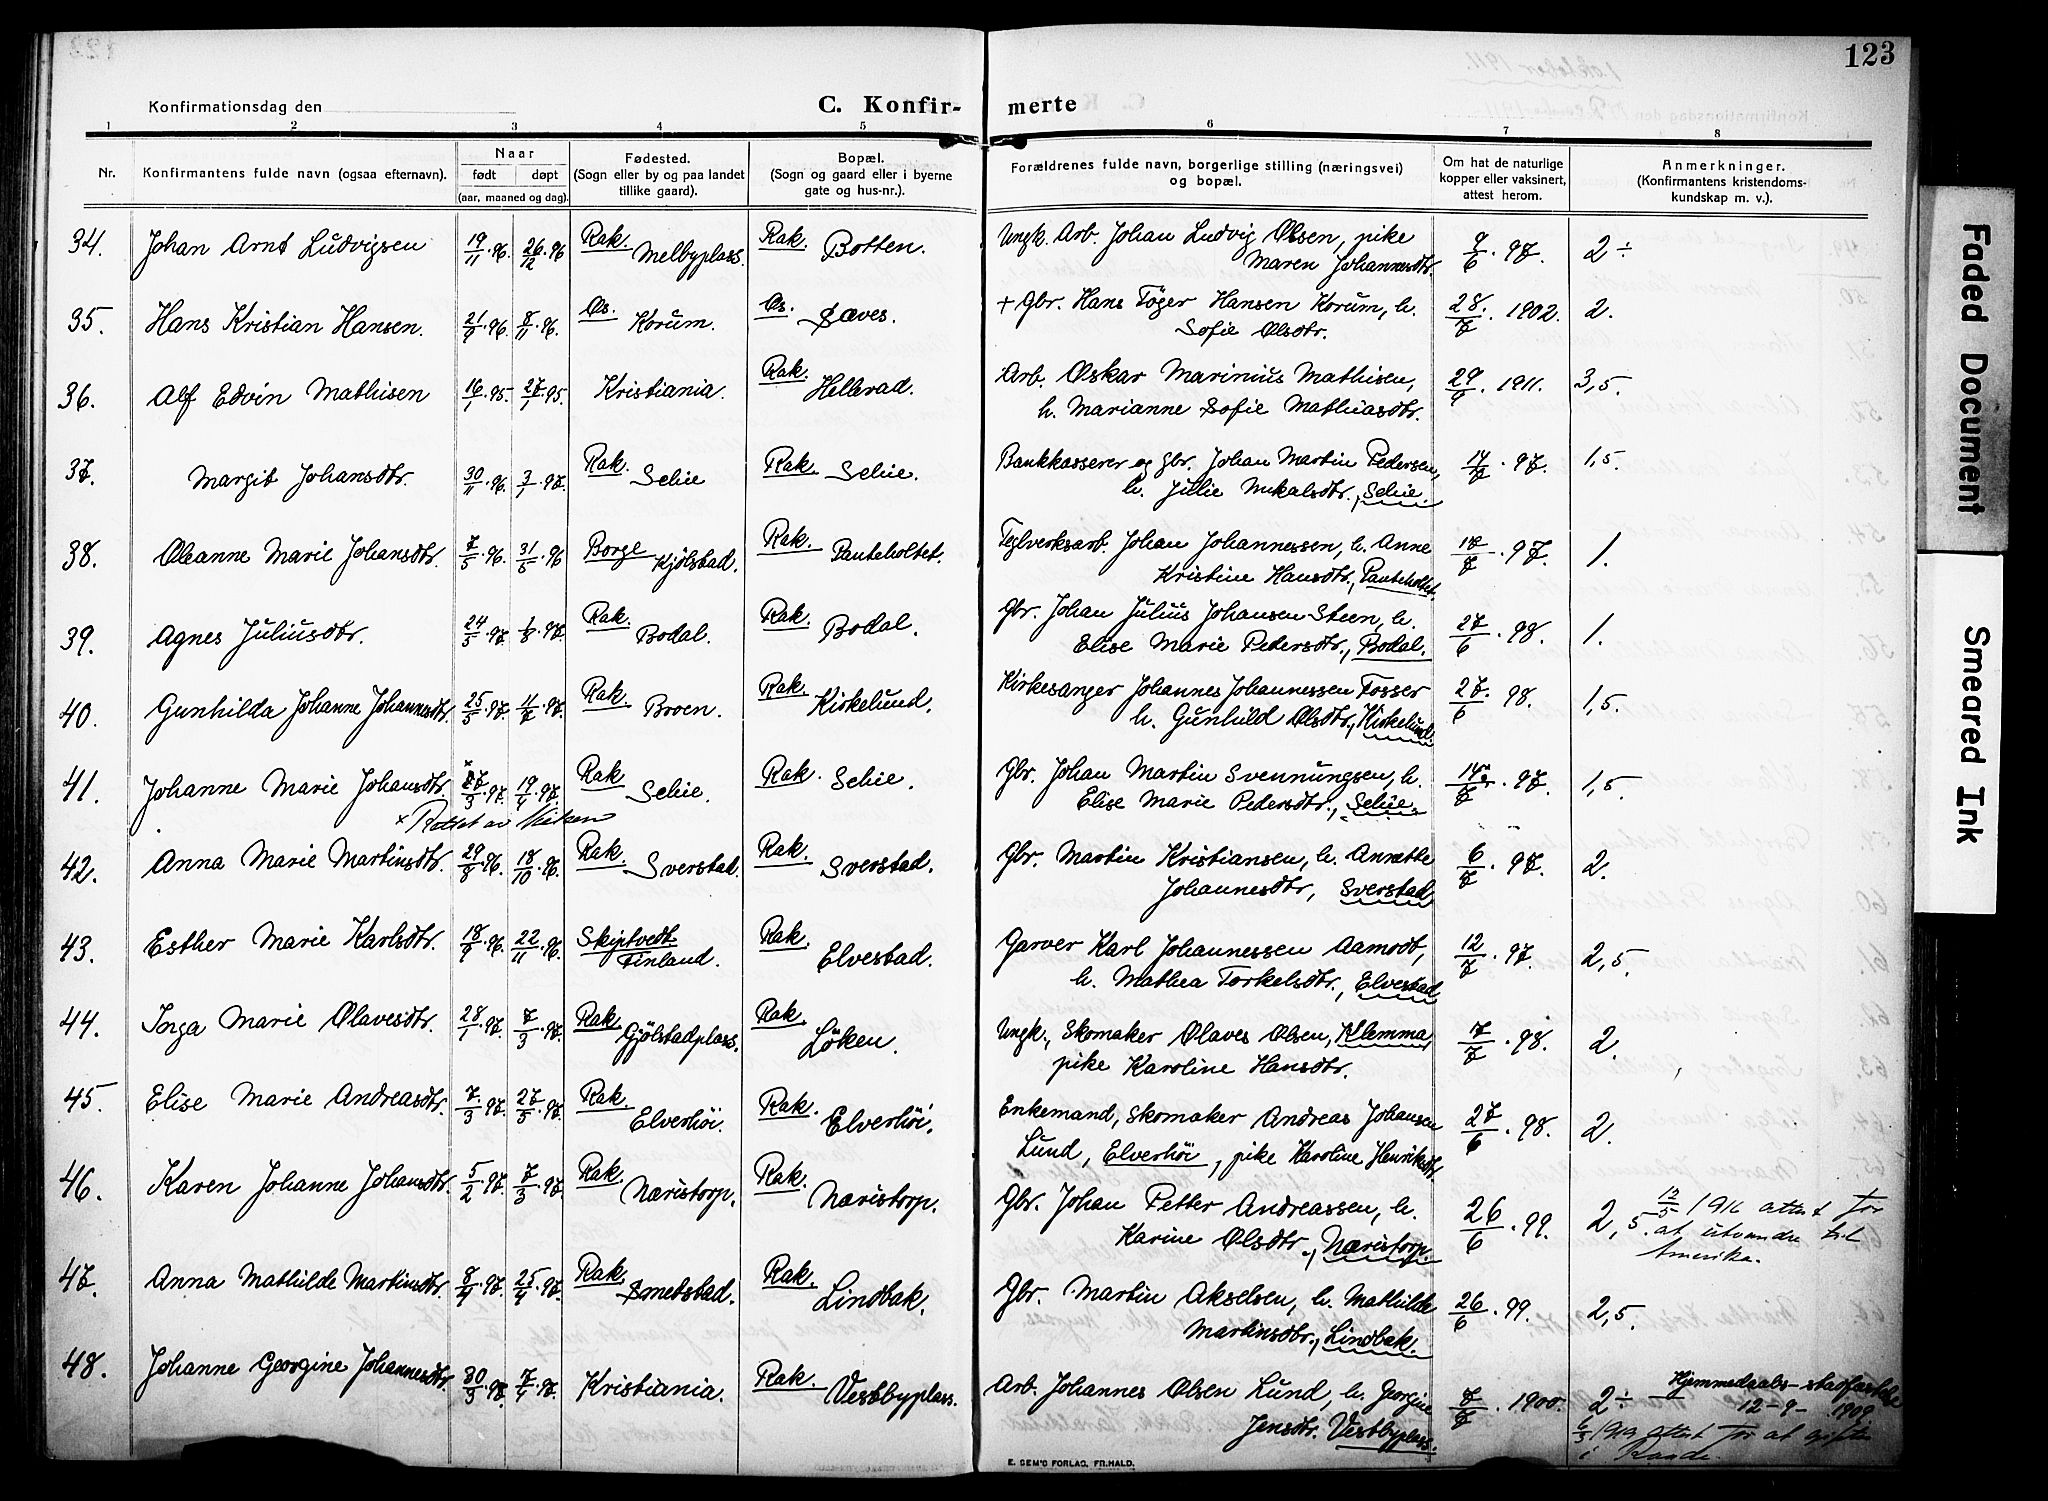 123
Konfirmationsdag den
C. Konfir- merte
1 2 3 4 5 6 7 8
Nr. Konfirmantens fulde navn (ogsaa efternavn). Naar født døpt (aar, maaned og dag).
Fødested. (Sogn eller by og paa landet tillike gaard).
Bopæl. (Sogn og gaard eller i byerne gate og hus-nr.).
Forældrenes fulde navn, borgerlige stilling (næringsvei) og bopæl.
Om hat de naturlige kopper eller vaksinert, attest herom.
Anmerkninger. (Konfirmantens kristendoms-kundskap m. v.).
34. Johan Arnt Ludvigsen 19/11.96. 26/12.96 Rak. Melbyplass. Rak. Botten. Ungk. Arb. Johan Ludvig Olsen, pike 9/6.97. 2÷
Maren Johannesdtr.
35. Hans Kristian Hansen. 21/9.96. 8/11.96. Os. Korum. Os. Sæves. + Gbr. Hans Töger Hansen Korum, h. 28/7.1902. 2.
Sofie Olsdtr.
36. Alf Edvin Mathisen 16/1.95. 27/1.95. Kristiania. Rak. Hellerad. Arb. Oskar Marinius Mathisen, 29/9.1911. 3,5.
h. Marianne Sofie Mathiasdtr.
37. Margit Johansdtr. 30/11.96. 3/1.97. Rak. Selüe Rak. Selüe. Bankkasserer og gbr. Johan Martin Pedersen, 14/7.97. 1,5.
h. Julie Mikalsdtr., Selüe.
38. Oleanne Marie Johansdtr. 7/5.96. 31/5.96 Borge Kjölstad. Rak. Panteholtet. Teglverksarb. Johan Johannessen, h. Anne 17/7.97. 1.
Kristine Hansdtr., Panteholtet.
39. Agnes Juliusdtr. 24/5.97. 1/8.97. Rak. Bodal. Rak. Bodal. Gbr. Johan Julius Johansen Steen, h. 27/6.98. 1.
Elise Marie Pedersdtr., Bodal.
40. Gunhilda Johanne Johannesdtr. 25/5.97. 11/7.97. Rak. Broen. Rak. Kirkelund. Kirkesanger Johannes Johannessen Fosser 27/6.98. 1,5.
h. Gunhild Olsdtr., Kirkelund.
41. Johanne Marie Johansdtr. x 27/3.97. 19/4.97. Rak Selüe. Rak. Selüe. Gbr. Johan Martin Svennungsen, h. 14/7.97. 1,5.
x Rettet av Nielsen Elise Marie Pedersdtr., Selüe.
42. Anna Marie Martinsdtr. 29/8.96. 18/10.96. Rak. Sverstad. Rak. Sverstad. Gbr. Martin Kristiansen, h. Anrette 6/7.97. 2.
Johannesdtr, Sverstad
43. Esther Marie Karlsdtr. 18/9.96. 22/11.96. Skiptvedt Finland. Rak. Elvestad. Garver Karl Johannessen Aamodt, 12/7.97. 2,5.
h. Mathea Torkelsdtr., Elvestad
44. Inga Marie Olavesdtr. 28/1.97. 7/3.97. Rak. Gjölstadplass. Rak. Löken. Ungk., Skomaker Olaves Olsen, Klemma, 7/7.98. 2.
pike Karoline Hansdtr.
45. Elise Marie Andreasdtr. 7/3.97. 27/5.97. Rak. Elverhöi. Rak. Elverhöi. Enkemand, Skomaker Andreas Johansen 27/6.98. 2.
Lund, Elverhöi, pike Karoline Henriksdtr.
46. Karen Johanne Johansdtr. 5/2.97. 7/3.97. Rak. Næristorp. Rak. Næristorp. Gbr. Johan Petter Andreassen, h. 26/6.99. 2,5. 12/5 1916 attest for
Karine Olsdtr., Næristorp. at utvandre til
Amerika.
47. Anna Mathilde Martinsdtr. 8/4.97. 25/4.97. Rak. Smedstad. Rak. Lindbak. Gbr. Martin Akselsen, h. Mathilde 26/6.99. 2,5.
Martinsdtr., Lindbak.
48. Johanne Georgine Johannesdtr. 30/3.97. 7/4.97. Kristiania. Rak. Vestbyplass. Arb. Johannes Olsen Lund, h. Georgine 7/7.1900. 2÷ Hjemmedaabs-stadfæstelse
Jensdtr. Vestbyplass. 12-9-1909
1919 attest for at gifte
i Raade.
E. SEM'S FORLAG, FR.HALD.
Faded Document
Smeared Ink